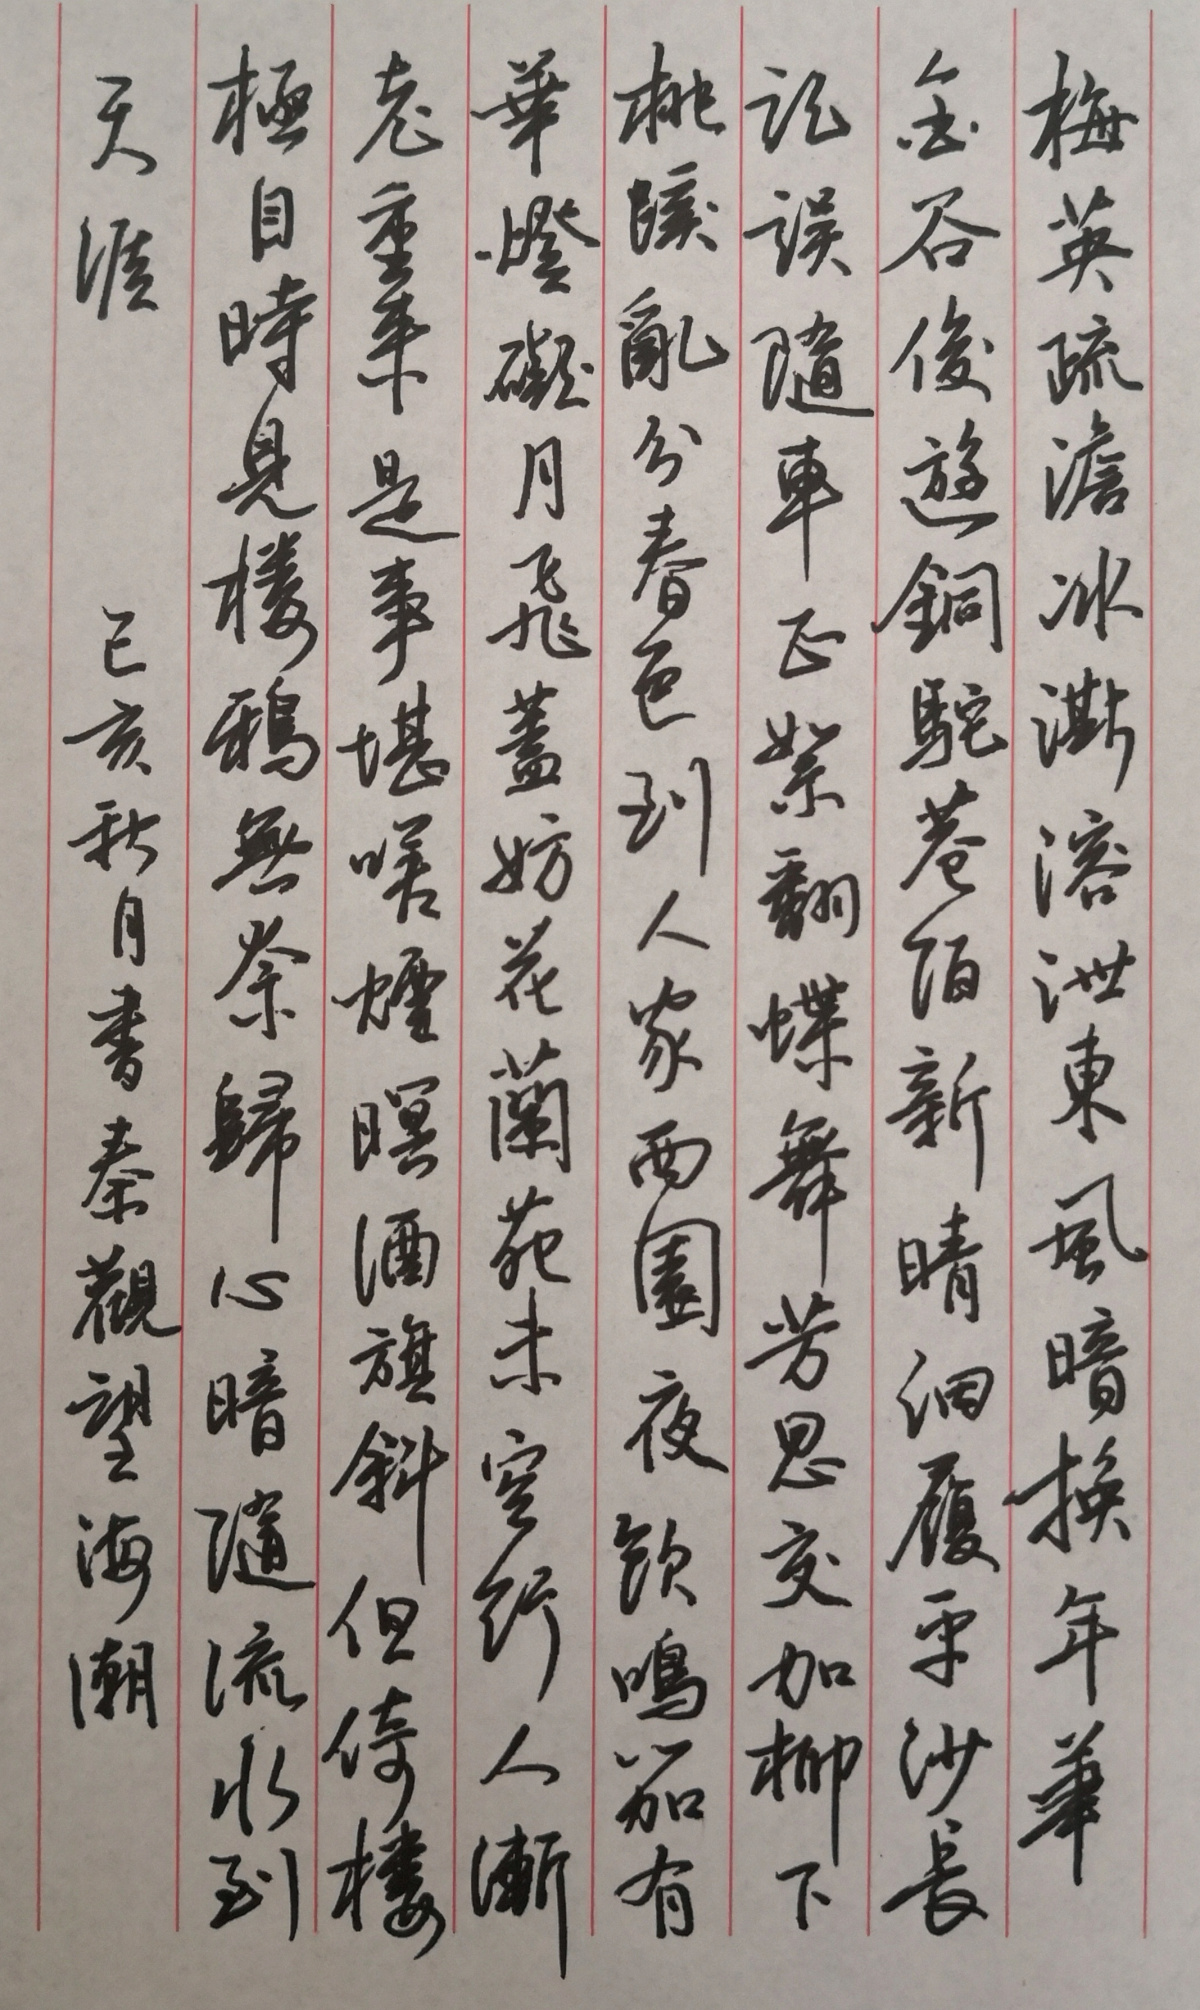 梅英疏澹冰澌溶泄東風暗換年華
金谷俊遊銅駝巷陌新晴細履平沙長
記誤隨車正絮翻蝶舞芳思交加柳下
桃蹊亂分春色到人家西園夜飲鳴笳有
華燈礙月飛蓋妨花蘭苑未空行人漸
老重來是事堪嗟煙暝酒旗斜但倚樓
極目時見棲鴉無奈歸心暗隨流水到
天涯 己亥秋月書秦觀望海潮